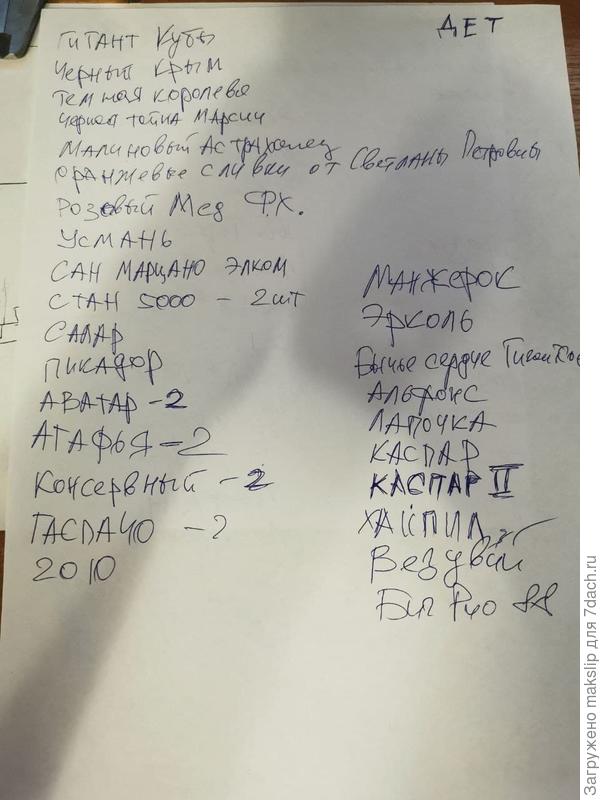 ДЕТ
ГИГАНТ Кубы
Черный Крым
Темная королева
Черная тайна Марсии
Малиновый Астраханец
оранжевые сливки от Светланы Петровны
Розовый Мед Ф.Х.
Усмань
САН МАРЦАНО ЭЛКОМ
СТАН 5000 - 2шт
САЛАР
ПИКАДОР
АВАТАР - 2
АГАФЬЯ - 2
Консервный - 2
ГАСПАЧО - 2
2010
МАНЖЕРОК
ЭРКОЛЬ
Бычье сердце
АЛЬФОНС
ЛАПОЧКА
КАСПАР
КАСПАР II
ХАЙПИЛ
Везувий
Биг Рио 88
Загружено makslip для 7dach.ru